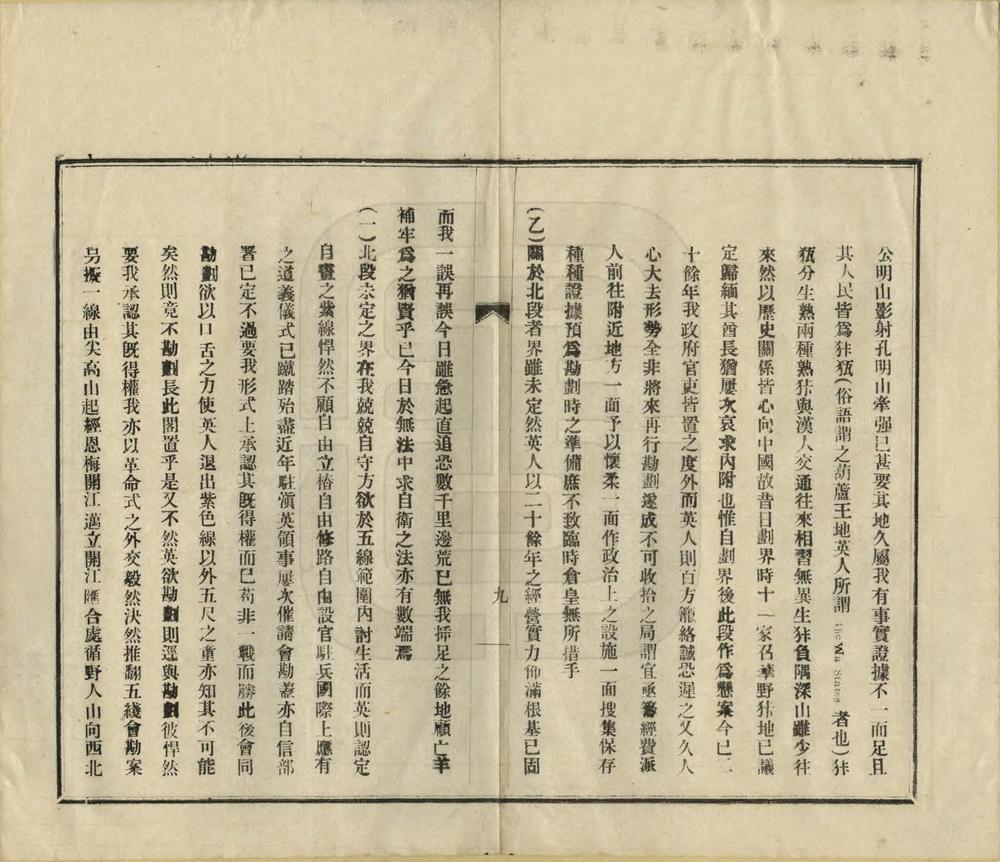 公明山影射孔明山牽强已甚要其地久屬我有事實證據不一而足且
其人民皆爲𤝞㼌(俗語謂之葫蘆王地英人所謂 The Wa States 者也)𤝞
㼌分生熟兩種熟𤝞與漢人交通往來相習無異生𤝞負隅深山雖少往
來然以歷史關係皆心向中國故昔日劃界時十一家召華野𤝞地已議
定歸緬其酋長猶屢次哀求內附也惟自劃界後此段作爲懸案今已二
十餘年我政府官吏皆置之度外而英人則百方籠絡誠恐遲之又久人
心大去形勢全非將來再行勘劃遂成不可收拾之局謂宜亟籌經費派
人前往附近地方一面予以懷柔一面作政治上之設施一面搜集保存
種種證據預爲勘劃時之準備庶不致臨時倉皇無所措手
(乙)關於北段者界雖未定然英人以二十餘年之經營實力佈滿根基已固
九
而我一誤再誤今日雖急起直追恐數千里邊荒已無我揷足之餘地顧亡羊
補牢爲之猶賢乎已今日於無法中求自衛之法亦有數端焉
(一)北段未定之界在我兢兢自守方欲於五線範圍內討生活而英則認定
自畫之紫線悍然不顧自由立樁自由修路自由設官駐兵國際上應有
之道義儀式已蹴踏殆盡近年駐滇英領事屢次催請會勘蓋亦自信部
署已定不過要我形式上承認其旣得權而已苟非一戰而勝此後會同
勘劃欲以口舌之力使英人退出紫色線以外五尺之童亦知其不可能
矣然則竟不勘劃長此閣置乎是又不然英欲勘劃則逕與勘劃彼悍然
要我承認其旣得權我亦以革命式之外交毅然決然推翻五綫會勘案
另擬一線由尖高山起經恩梅開江邁立開江匯合處循野人山向西北